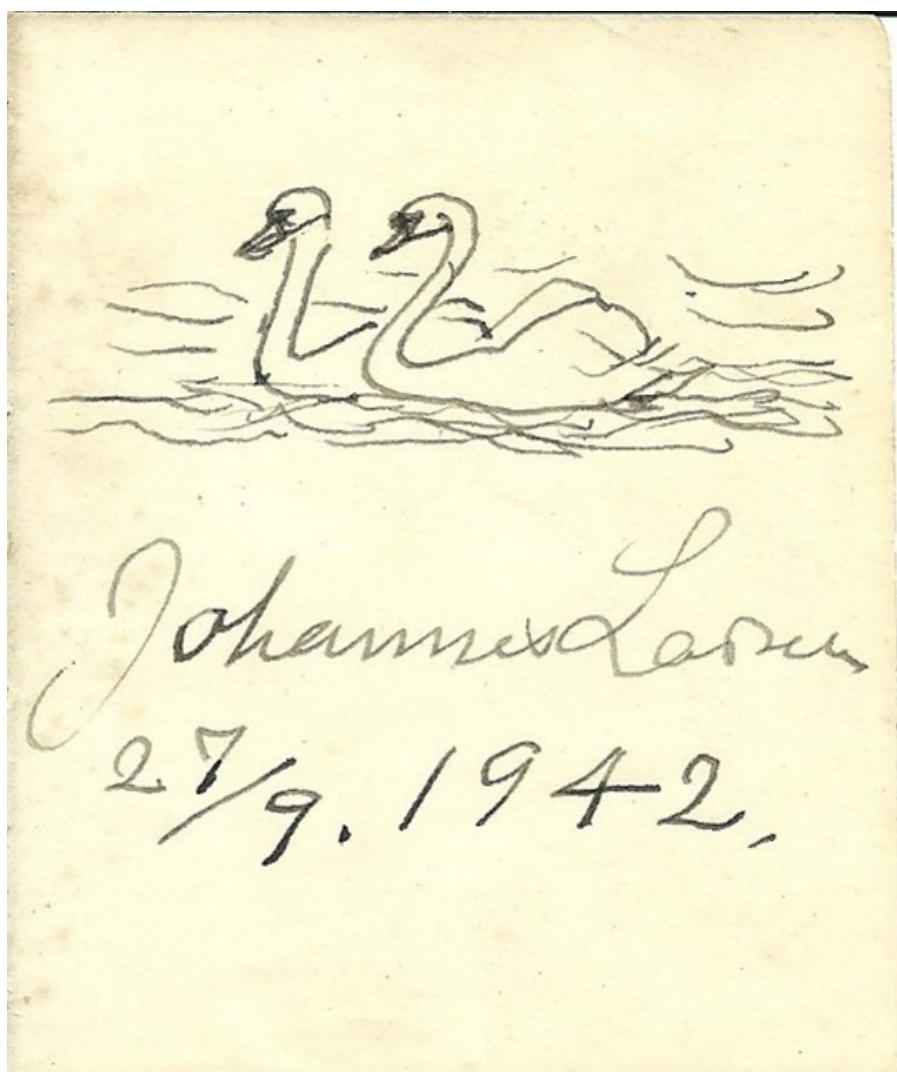 Johannes Larsen
27/9. 1942.